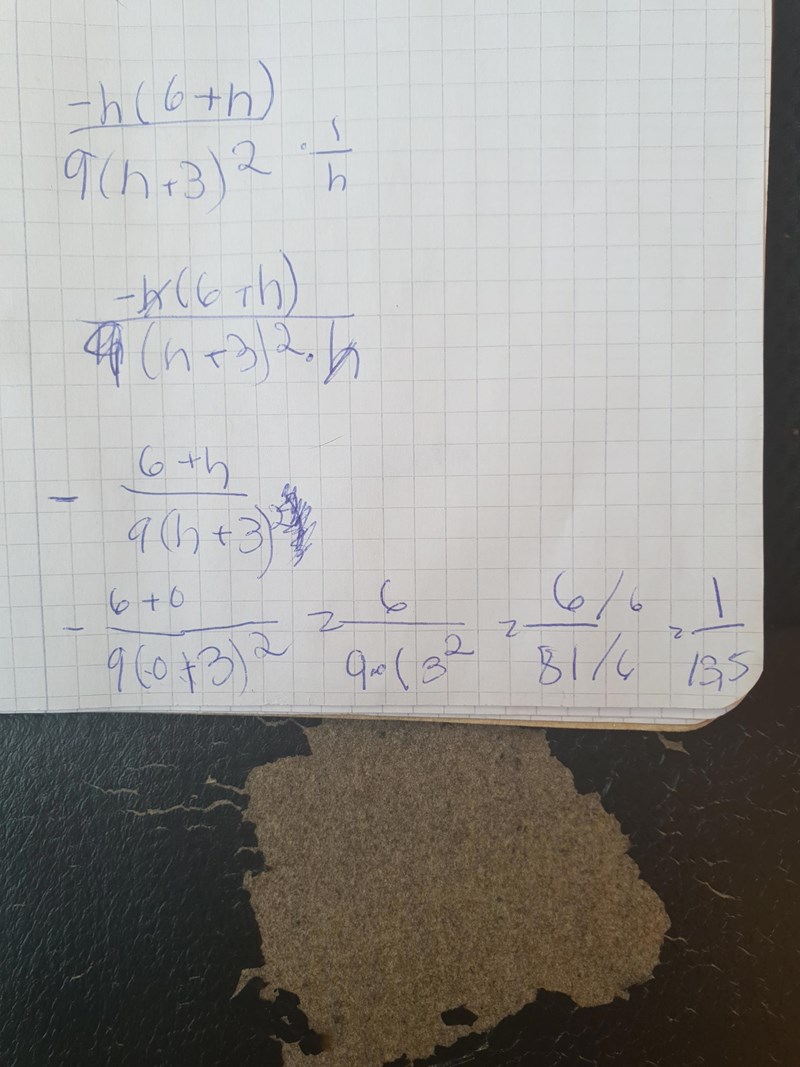 -h(6+h)/9(h+3)² · 1/h
-h(6+h)/9(h+3)²·h
- 6+h/9(h+3)²
- 6+0/9(0+3)² = 6/9·(3² = 6/6/81/6 = 1/13,5